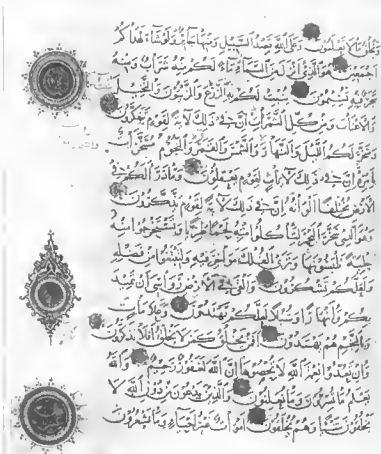 يخلق ما لا تعلمون وعلى الله قصد السبيل ومنها جائر ولو شاء لهداكم
أجمعين هو الذي أنزل من السماء ماء لكم منه شراب ومنه
شجر فيه تسيمون ينبت لكم به الزرع والزيتون والنخيل
والأعناب ومن كل الثمرات إن في ذلك لآية لقوم يتفكرون
وسخر لكم الليل والنهار والشمس والقمر والنجوم مسخرات
بأمره إن في ذلك لآيات لقوم يعقلون وما ذرأ لكم في
الأرض مختلفا ألوانه إن في ذلك لآية لقوم يذكرون
وهو الذي سخر البحر لتأكلوا منه لحما طريا وتستخرجوا منه
حلية تلبسونها وترى الفلك مواخر فيه ولتبتغوا من فضله
ولعلكم تشكرون وألقى في الأرض رواسي أن تميد
بكم وأنهارا وسبلا لعلكم تهتدون وعلامات
وبالنجم هم يهتدون أفمن يخلق كمن لا يخلق أفلا تذكرون
وإن تعدوا نعمة الله لا تحصوها إن الله لغفور رحيم والله
يعلم ما تسرون وما تعلنون والذين يدعون من دون الله لا
يخلقون شيئا وهم يخلقون أموات غير أحياء وما يشعرون